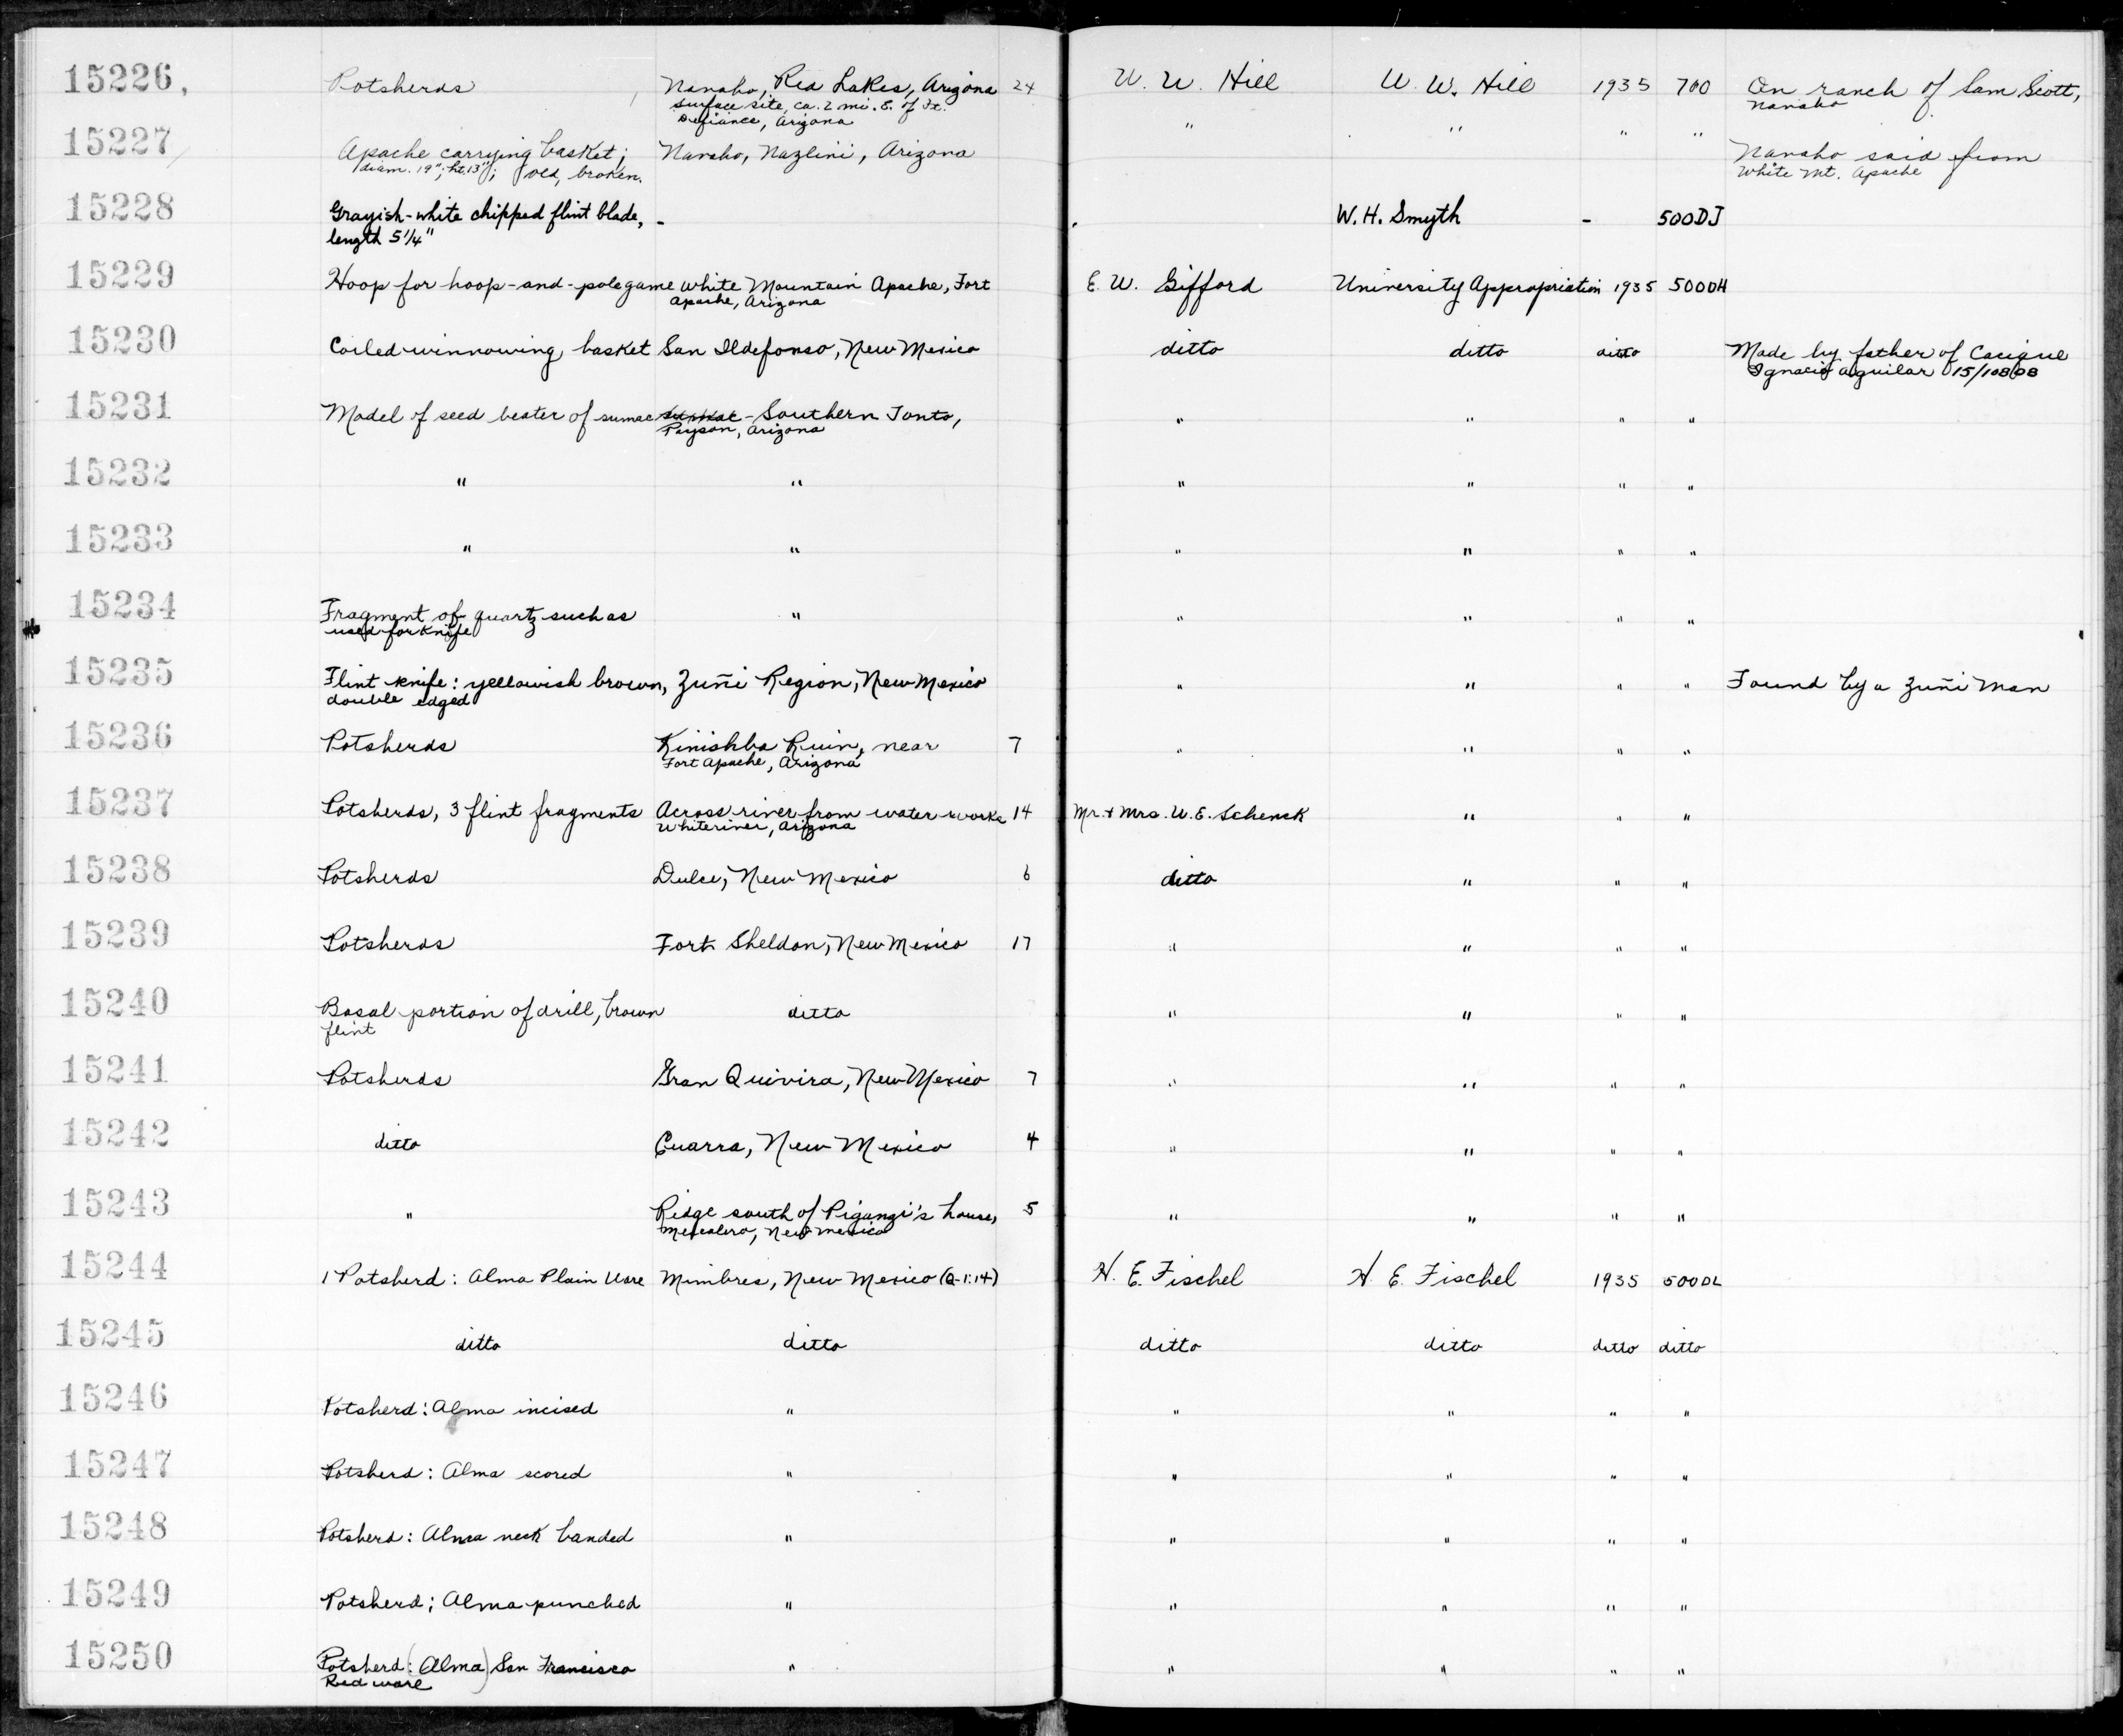 15226, Potsherds Navaho, Red Lakes, Arizona 24 W. W. Hill W. W. Hill 1935 700 On ranch of Sam Scott,
surface site, ca. 2 mi. E. of Ft. Navaho
Defiance, Arizona
15227 Apache carrying basket; Navaho, Nazlini, Arizona " " " " Navaho said from
diam. 19"; ht. 13"; old, broken. White Mt. Apache
15228 Grayish-white chipped flint blade, - W. H. Smyth - 500DJ
length 5 1/4"
15229 Hoop for hoop-and-pole game White Mountain Apache, Fort E. W. Gifford University Appropriation 1935 500DH
Apache, Arizona
15230 Coiled winnowing basket San Ildefonso, New Mexico ditto ditto ditto Made by father of Cacique
Ignacio Aguilar 15/10898
15231 Model of seed beater of sumac Southern Tonto, " " " "
Payson, Arizona
15232 " " " " " "
15233 " " " " " "
15234 Fragment of quartz such as " " " " "
used for knife
15235 Flint knife: yellowish brown, Zuñi Region, New Mexico " " " " Found by a Zuñi man
double edged
15236 Potsherds Kinishba Ruin, near 7 " " " "
Fort Apache, Arizona
15237 Potsherds, 3 flint fragments Across river from water works 14 Mr. & Mrs. W. E. Schenck " " "
Whiteriver, Arizona
15238 Potsherds Dulce, New Mexico 6 ditto " " "
15239 Potsherds Fort Sheldon, New Mexico 17 " " " "
15240 Basal portion of drill, brown ditto " " " "
flint
15241 Potsherds Gran Quivira, New Mexico 7 " " " "
15242 ditto Cuarra, New Mexico 4 " " " "
15243 " Ridge south of Piganzi's house, 5 " " " "
Mescalero, New Mexico
15244 1 Potsherd: Alma Plain Ware Mimbres, New Mexico (Q-1:14) H. E. Fischel H. E. Fischel 1935 500DL
15245 ditto ditto ditto ditto ditto ditto
15246 Potsherd: Alma incised " " " " "
15247 Potsherd: Alma scored " " " " "
15248 Potsherd: Alma neck banded " " " " "
15249 Potsherd: Alma punched " " " " "
15250 Potsherd: (Alma) San Francisco " " " " "
Red ware